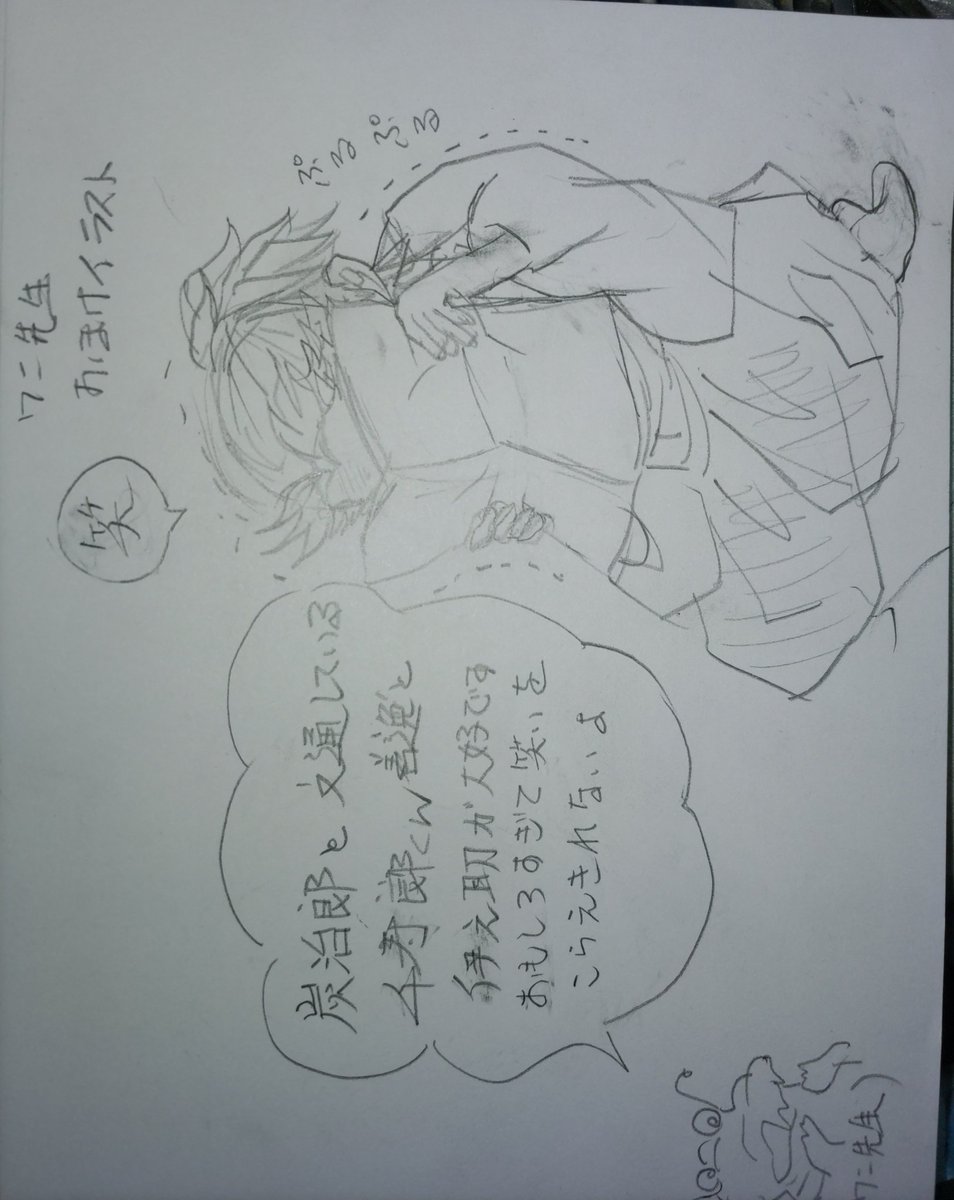 ワニ先生
おまけイラスト
笑
ぷるぷる
炭治郎と文通している
千寿郎くん善逸と
伊之助が大好きです
おもしろすぎて笑いを
こらえきれないよ
ワニ先生)